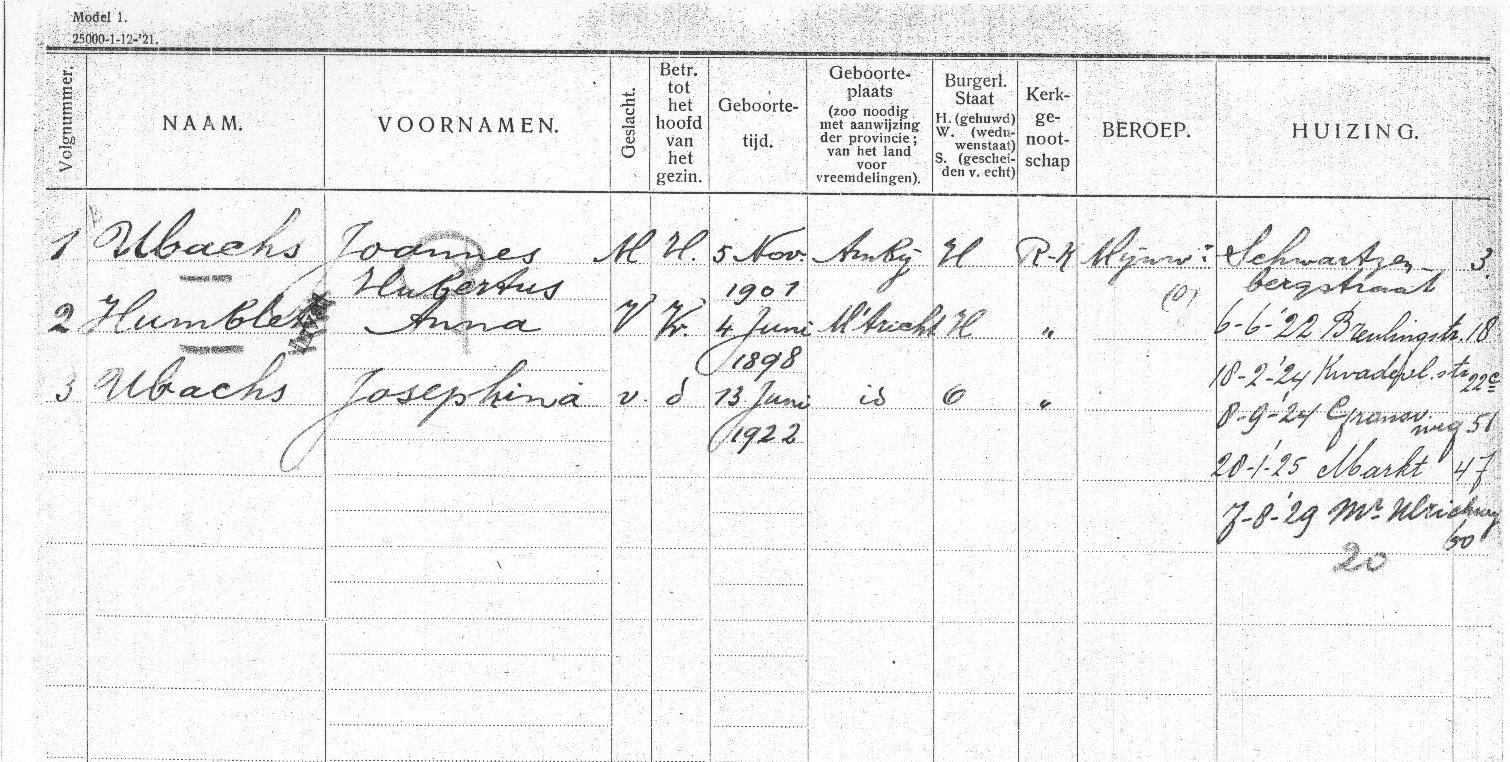 Model 1.
25000-1-12-'21.
Volgnummer.
NAAM.
VOORNAMEN.
Geslacht.
Betr.
tot
het
hoofd
van
het
gezin.
Geboorte-
tijd.
Geboorte-
plaats
(zoo noodig
met aanwijzing
der provincie;
van het land
voor
vreemdelingen).
Burgerl.
Staat
H. (gehuwd)
W. (wedu-
wenstaat)
S. (geschei-
den v. echt)
Kerk-
ge-
noot-
schap
BEROEP.
HUIZING.
1 Ubachs Joannes M H. 5 Nov. Amby H R-K Mijnw: Schwartzen- 3.
Hubertus 1901 (O) bergstraat
2 Humblet Anna V Vr. 4 Juni M'tricht H " 6-6-'22 Breulingstr. 18
1898
18-2-'24 Kwadepl. str 22c
3 Ubachs Josephina v. d 13 Juni id O "
8-9-'24 Gransv. 51
1922 weg
20-1-'25 Markt 47
7-8-'29 Mr Ulrichweg
50
20